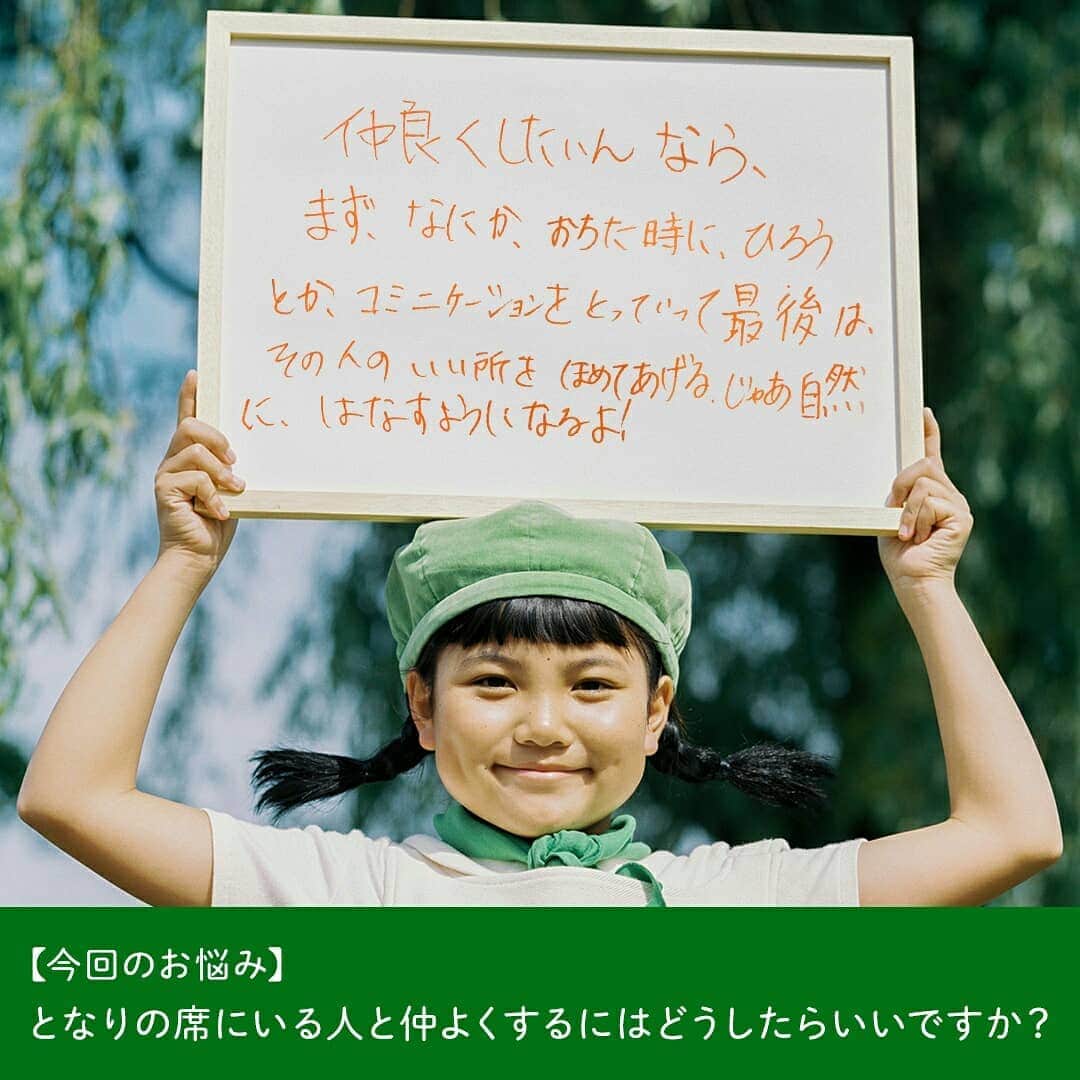 仲良くしたいんなら、
まず、なにか、おちた時に、ひろう
とか、コミニケーションをとっていって最後は、
その人のいい所をほめてあげる。じゃあ自然
に、はなすようになるよ!
【今回のお悩み】
となりの席にいる人と仲よくするにはどうしたらいいですか?